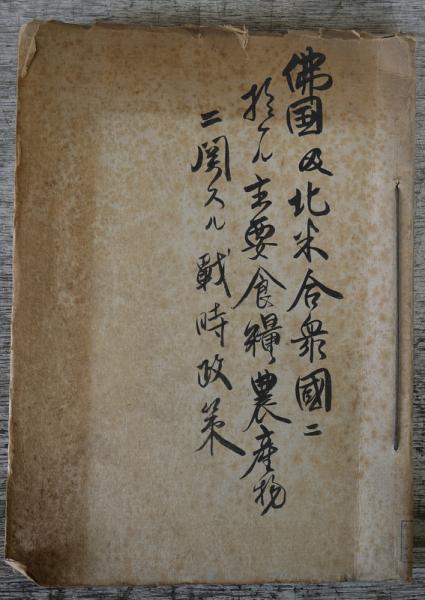 佛国及北米合衆國ニ
於ケル主要食糧農産物
ニ関スル戦時政策